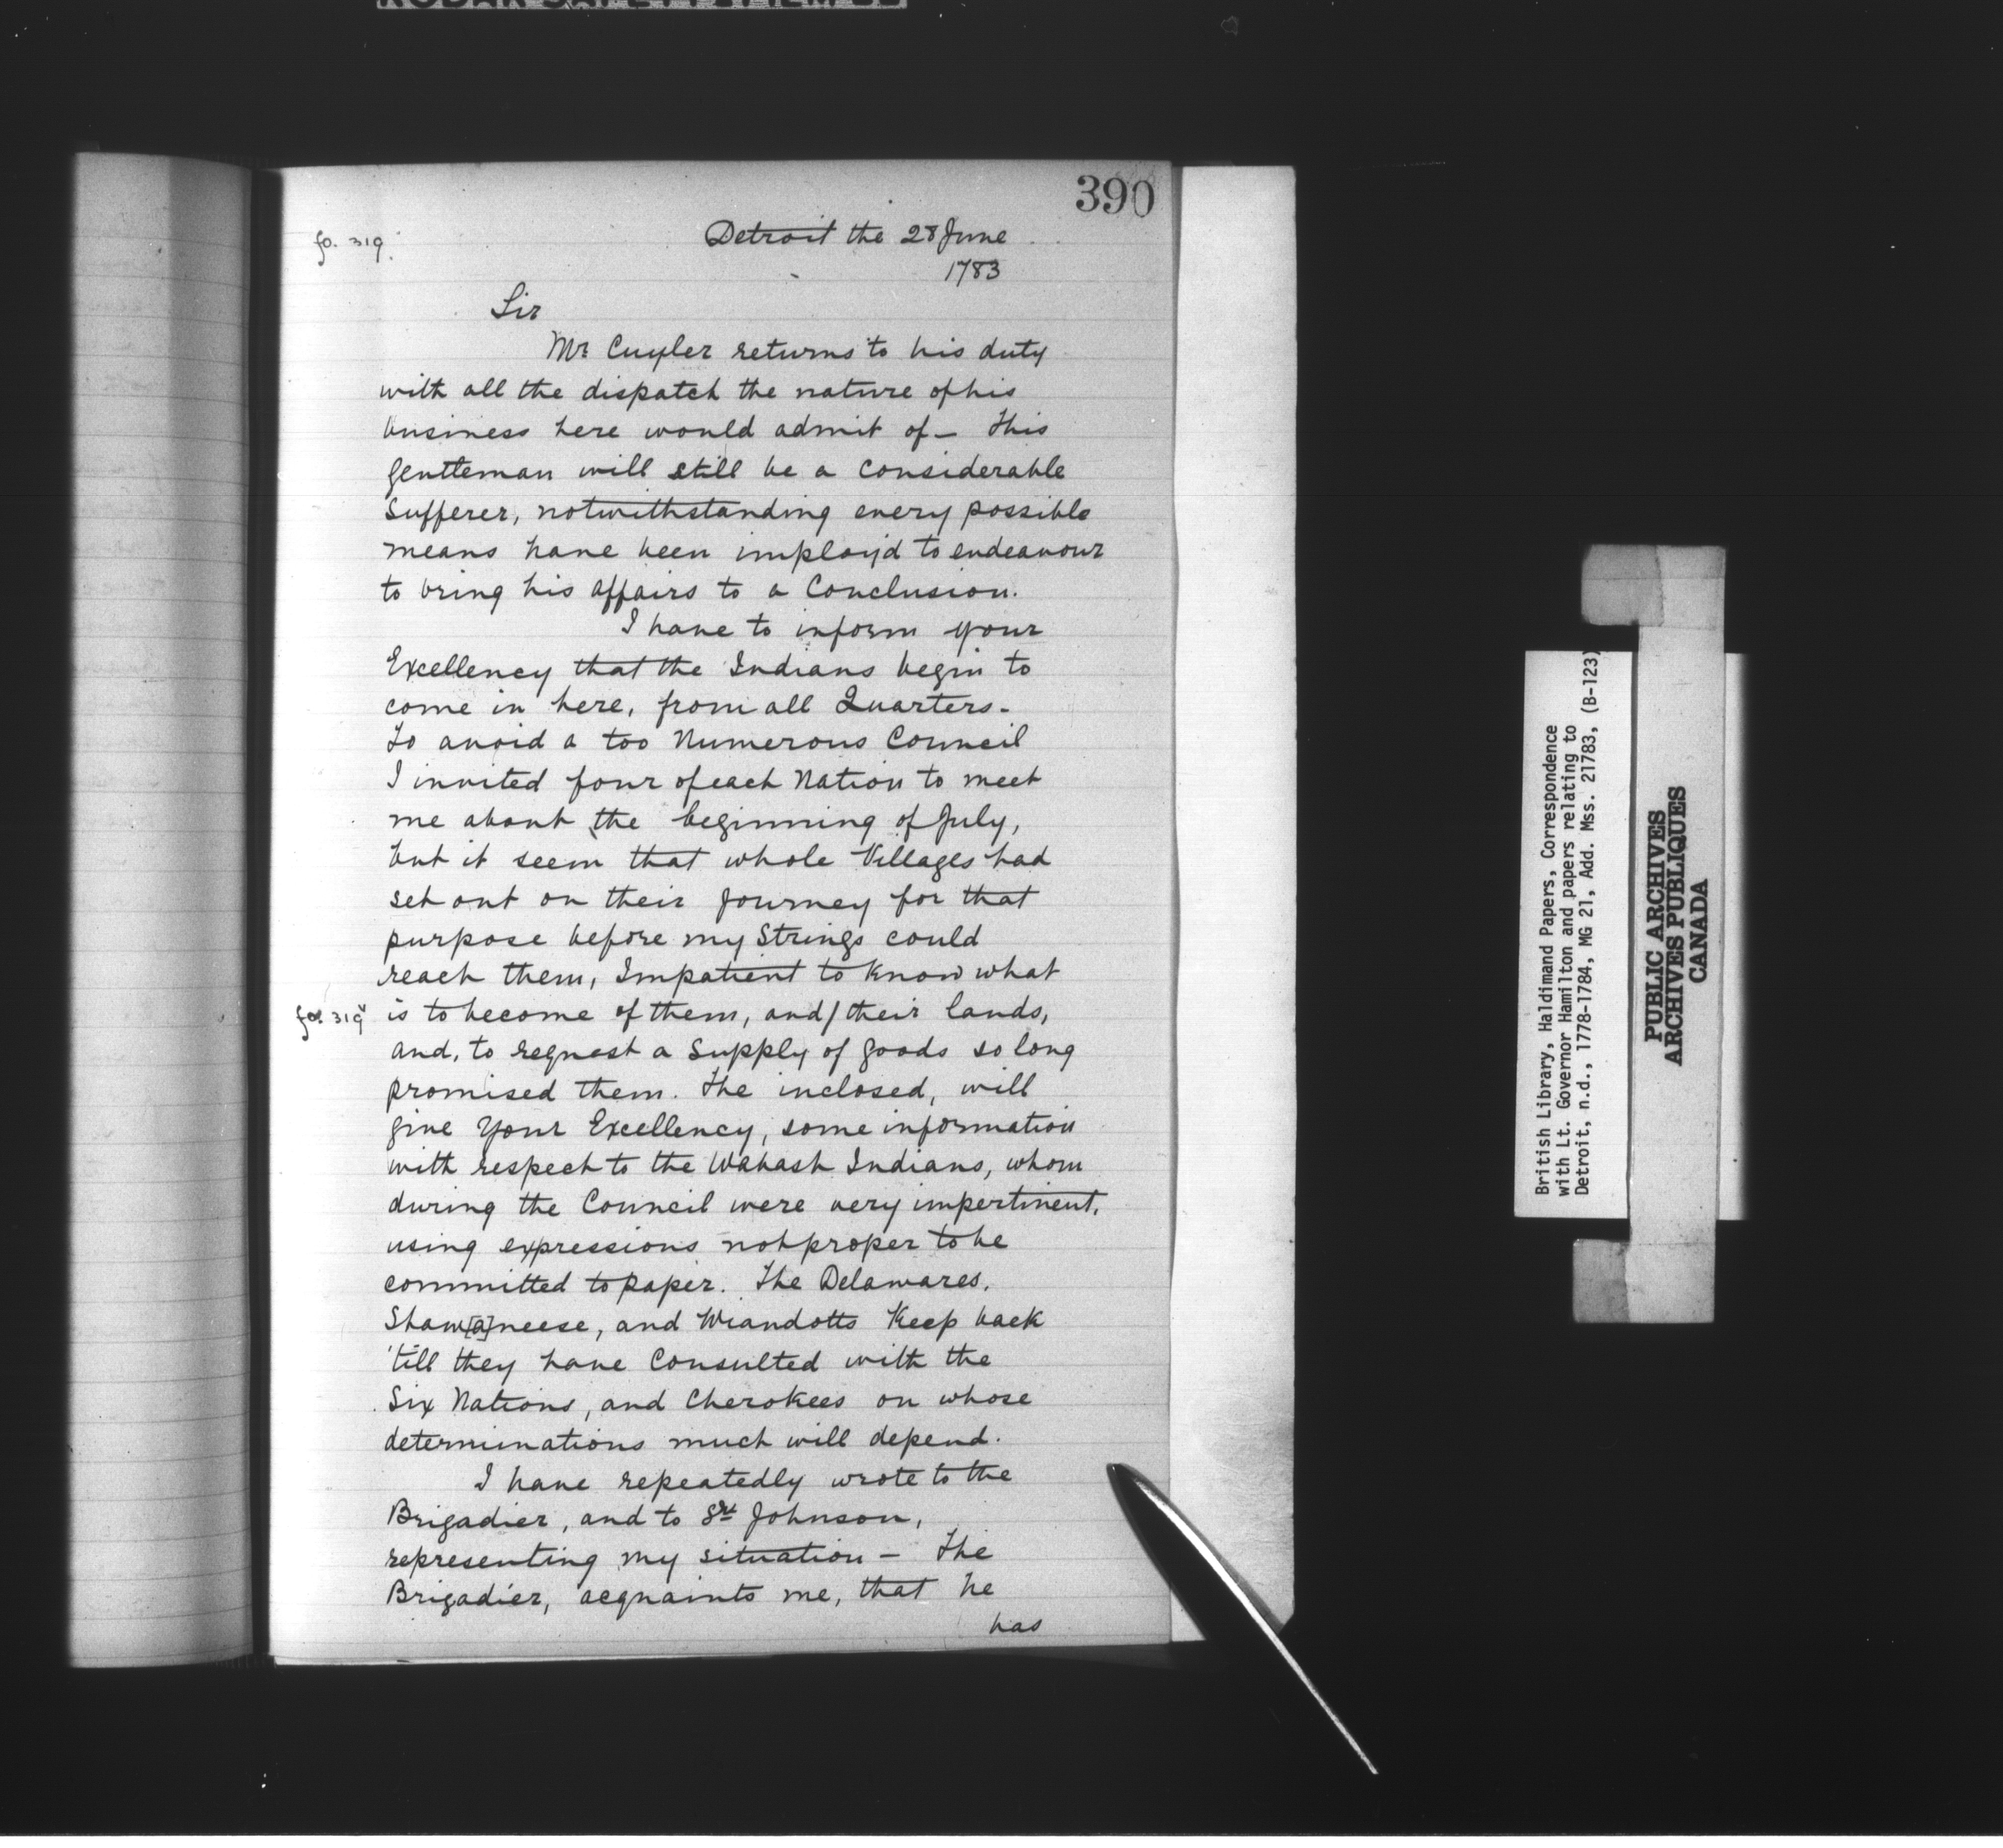 390
fo. 319.
Detroit the 28 June
1783
Sir
Mr Cuyler returns to his duty
with all the dispatch the nature of his
business here would admit of — This
gentleman will still be a considerable
Sufferer, notwithstanding every possible
means have been imploy'd to endeavour
to bring his affairs to a Conclusion.
I have to inform your
Excellency that the Indians begin to
come in here, from all Quarters -
To avoid a too Numerous Council
I invited four of each Nation to meet
me about the beginning of July,
but it seem that whole Villages had
set out on their Journey for that
purpose before my Strings could
reach them, Impatient to Know what
fo. 319v is to become of them, and/their lands,
and, to request a Supply of goods so long
promised them. The inclosed, will
give Your Excellency, some information
with respect to the Wabash Indians, whom
during the Council were very impertinent,
using expressions not proper to be
committed to paper. The Delawares,
Shaw[a]neese, and Wiandotts Keep back
'till they have Consulted with the
Six Nations, and Cherokees on whose
determinations much will depend.
I have repeatedly wrote to the
Brigadier, and to Johnson,
representing my situation — The
Brigadier, acquaints me, that he
has
British Library, Haldimand Papers, Correspondence
with Lt. Governor Hamilton and papers relating to
Detroit, n.d., 1778-1784, MG 21, Add. Mss. 21783, (B-123)
PUBLIC ARCHIVES
ARCHIVES PUBLIQUES
CANADA